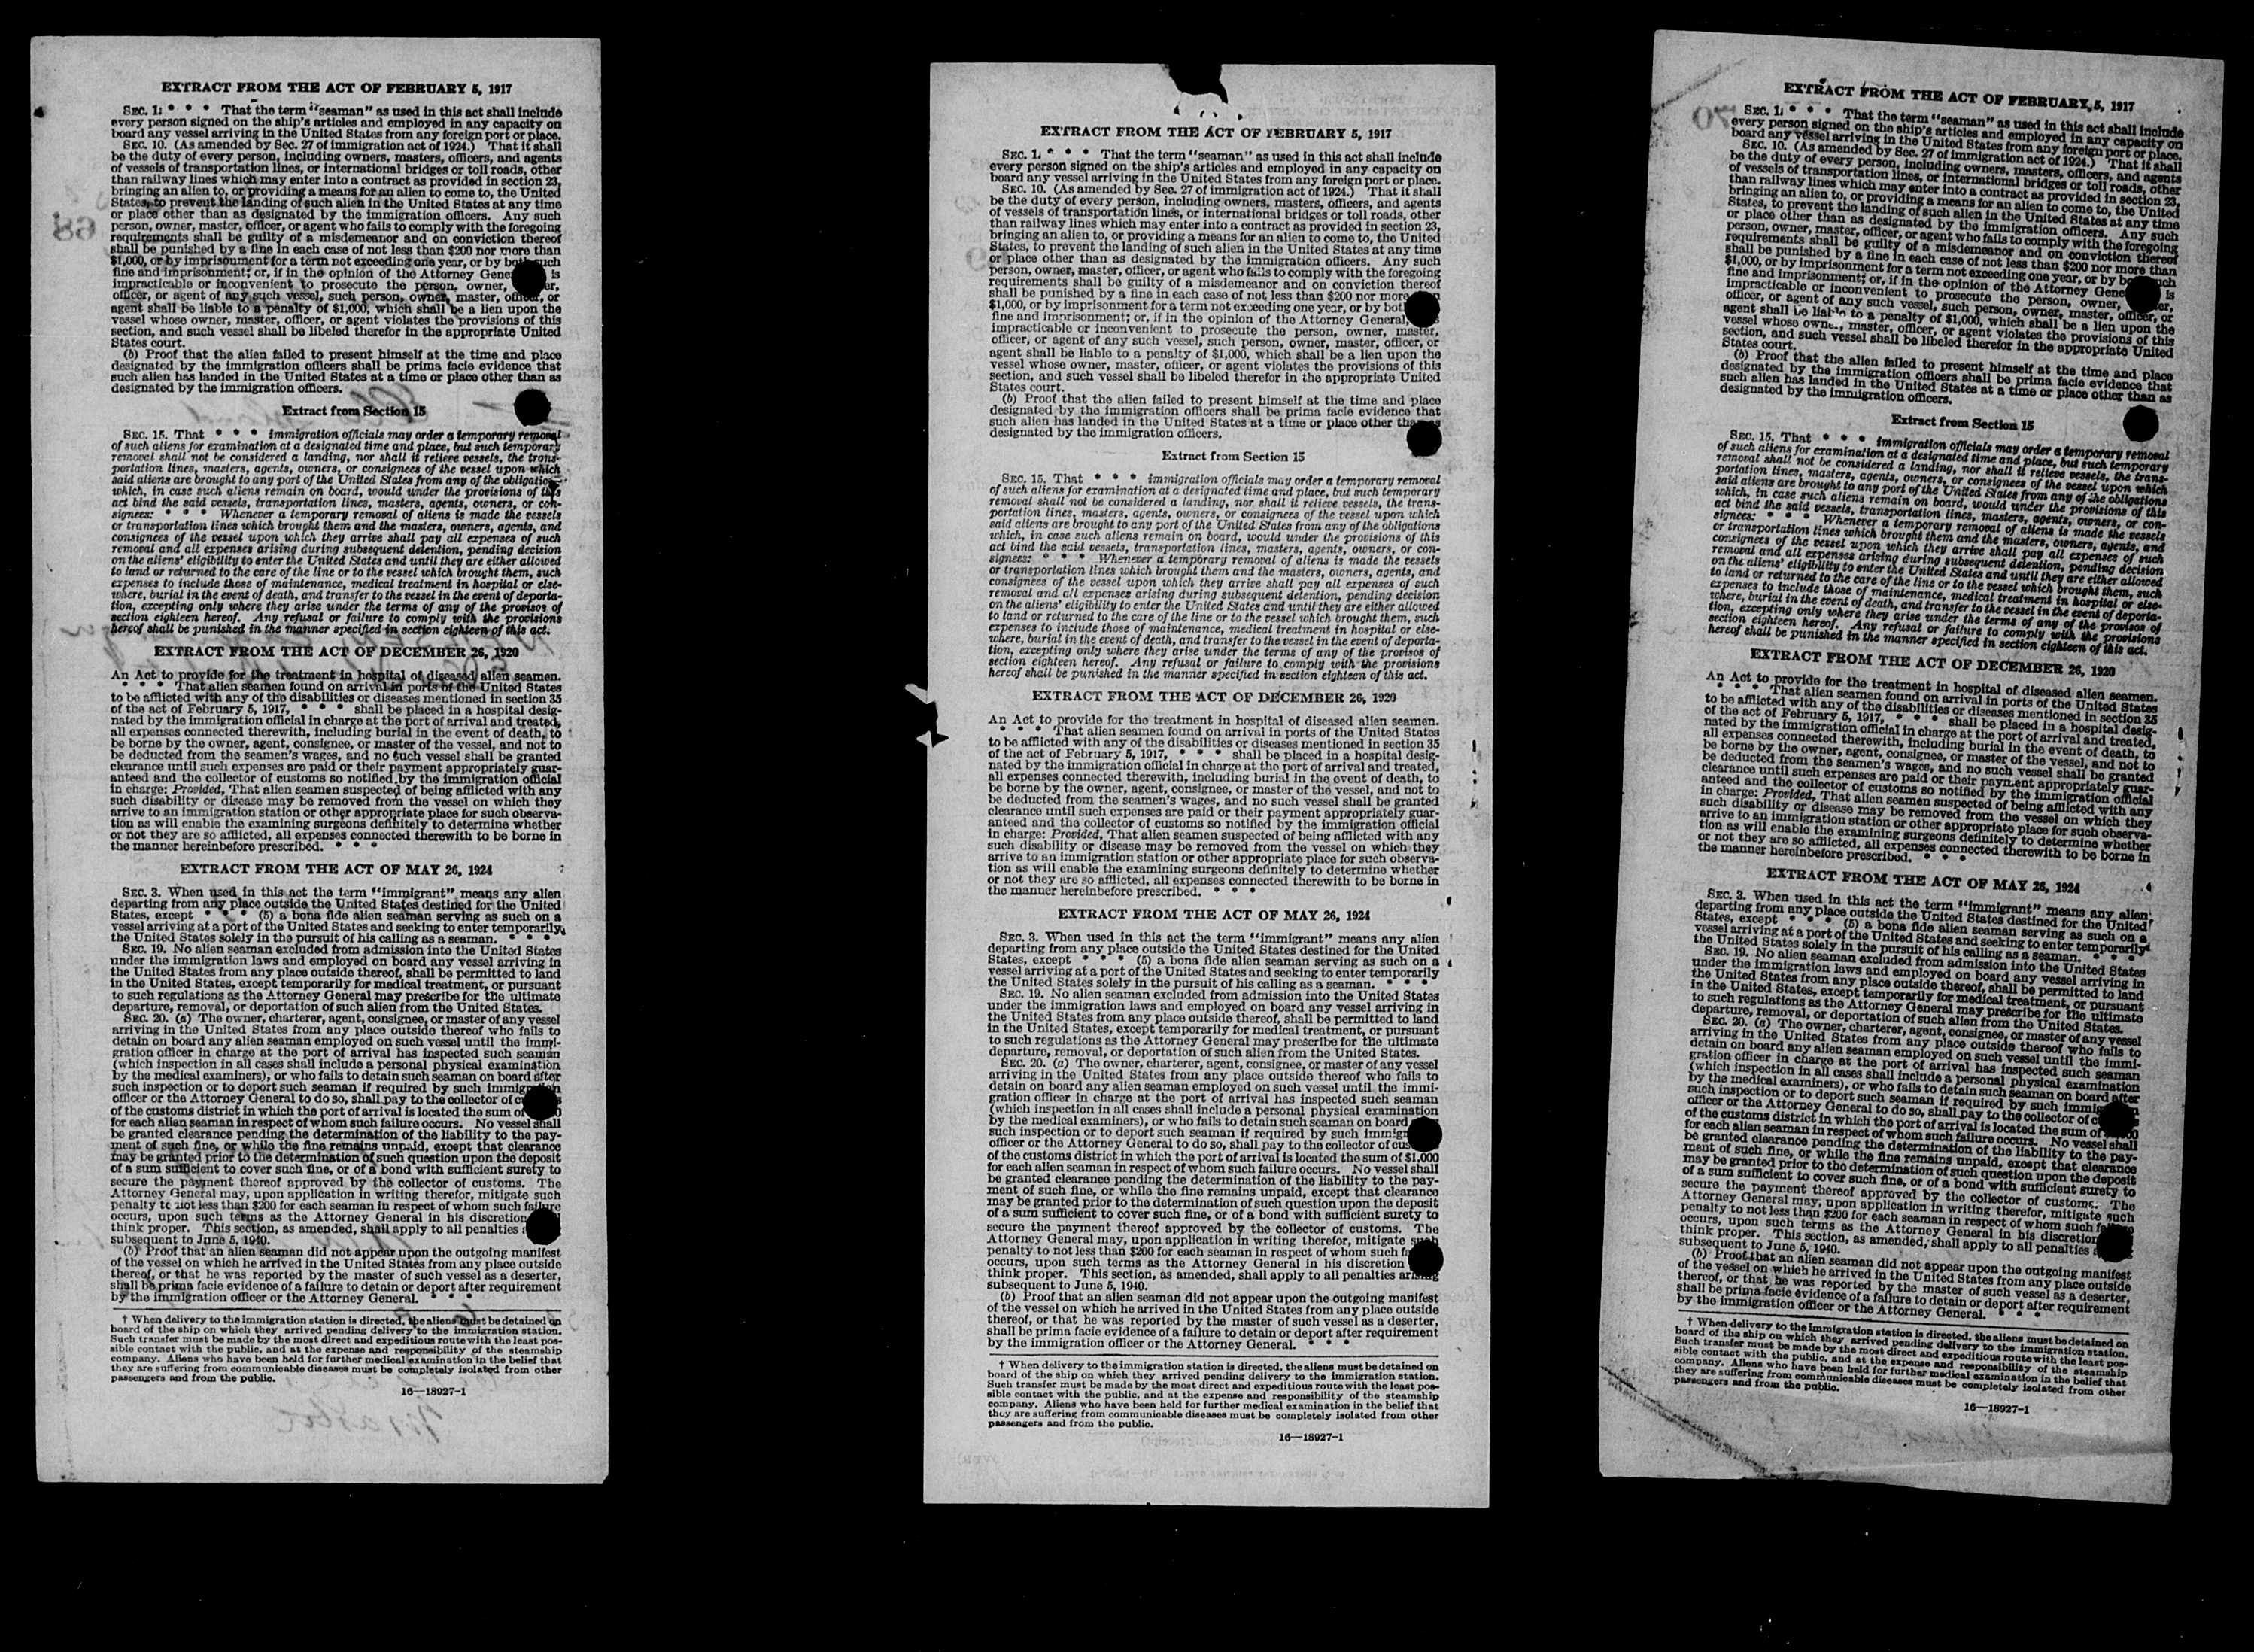 EXTRACT FROM THE ACT OF FEBRUARY 5, 1917
SEC. 1. * * * That the term "seaman" as used in this act shall include
every person signed on the ship's articles and employed in any capacity on
board any vessel arriving in the United States from any foreign port or place.
SEC. 10. (As amended by Sec. 27 of immigration act of 1924.) That it shall
be the duty of every person, including owners, masters, officers, and agents
of vessels of transportation lines, or international bridges or toll roads, other
than railway lines which may enter into a contract as provided in section 23,
bringing an alien to, or providing a means for an alien to come to, the United
States, to prevent the landing of such alien in the United States at any time
or place other than as designated by the immigration officers. Any such
person, owner, master, officer, or agent who fails to comply with the foregoing
requirements shall be guilty of a misdemeanor and on conviction thereof
shall be punished by a fine in each case of not less than $200 nor more than
$1,000, or by imprisonment for a term not exceeding one year, or by both such
fine and imprisonment; or, if in the opinion of the Attorney Gene is
impracticable or inconvenient to prosecute the person, owner, er,
officer, or agent of any such vessel, such person, owner, master, officer, or
agent shall be liable to a penalty of $1,000, which shall be a lien upon the
vessel whose owner, master, officer, or agent violates the provisions of this
section, and such vessel shall be libeled therefor in the appropriate United
States court.
(b) Proof that the alien failed to present himself at the time and place
designated by the immigration officers shall be prima facie evidence that
such alien has landed in the United States at a time or place other than as
designated by the immigration officers.
Extract from Section 15
SEC. 15. That * * * immigration officials may order a temporary removal
of such aliens for examination at a designated time and place, but such temporary
removal shall not be considered a landing, nor shall it relieve vessels, the trans-
portation lines, masters, agents, owners, or consignees of the vessel upon which
said aliens are brought to any port of the United States from any of the obligations
which, in case such aliens remain on board, would under the provisions of this
act bind the said vessels, transportation lines, masters, agents, owners, or con-
signees: * * * Whenever a temporary removal of aliens is made the vessels
or transportation lines which brought them and the masters, owners, agents, and
consignees of the vessel upon which they arrive shall pay all expenses of such
removal and all expenses arising during subsequent detention, pending decision
on the aliens' eligibility to enter the United States and until they are either allowed
to land or returned to the care of the line or to the vessel which brought them, such
expenses to include those of maintenance, medical treatment in hospital or else-
where, burial in the event of death, and transfer to the vessel in the event of deporta-
tion, excepting only where they arise under the terms of any of the provisos of
section eighteen hereof. Any refusal or failure to comply with the provisions
hereof shall be punished in the manner specified in section eighteen of this act.
EXTRACT FROM THE ACT OF DECEMBER 26, 1920
An Act to provide for the treatment in hospital of diseased alien seamen.
* * * That alien seamen found on arrival in ports of the United States
to be afflicted with any of the disabilities or diseases mentioned in section 35
of the act of February 5, 1917, * * * shall be placed in a hospital desig-
nated by the immigration official in charge at the port of arrival and treated,
all expenses connected therewith, including burial in the event of death, to
be borne by the owner, agent, consignee, or master of the vessel, and not to
be deducted from the seamen's wages, and no such vessel shall be granted
clearance until such expenses are paid or their payment appropriately guar-
anteed and the collector of customs so notified by the immigration official
in charge: Provided, That alien seamen suspected of being afflicted with any
such disability or disease may be removed from the vessel on which they
arrive to an immigration station or other appropriate place for such observa-
tion as will enable the examining surgeons definitely to determine whether
or not they are so afflicted, all expenses connected therewith to be borne in
the manner hereinbefore prescribed. * * *
EXTRACT FROM THE ACT OF MAY 26, 1924
SEC. 3. When used in this act the term "immigrant" means any alien
departing from any place outside the United States destined for the United
States, except * * * (5) a bona fide alien seaman serving as such on a
vessel arriving at a port of the United States and seeking to enter temporarily
the United States solely in the pursuit of his calling as a seaman. * * *
SEC. 19. No alien seaman excluded from admission into the United States
under the immigration laws and employed on board any vessel arriving in
the United States from any place outside thereof, shall be permitted to land
in the United States, except temporarily for medical treatment, or pursuant
to such regulations as the Attorney General may prescribe for the ultimate
departure, removal, or deportation of such alien from the United States.
SEC. 20. (a) The owner, charterer, agent, consignee, or master of any vessel
arriving in the United States from any place outside thereof who fails to
detain on board any alien seaman employed on such vessel until the immi-
gration officer in charge at the port of arrival has inspected such seaman
(which inspection in all cases shall include a personal physical examination
by the medical examiners), or who fails to detain such seaman on board after
such inspection or to deport such seaman if required by such immigration
officer or the Attorney General to do so, shall pay to the collector of c s
of the customs district in which the port of arrival is located the sum of
for each alien seaman in respect of whom such failure occurs. No vessel shall
be granted clearance pending the determination of the liability to the pay-
ment of such fine, or while the fine remains unpaid, except that clearance
may be granted prior to the determination of such question upon the deposit
of a sum sufficient to cover such fine, or of a bond with sufficient surety to
secure the payment thereof approved by the collector of customs. The
Attorney General may, upon application in writing therefor, mitigate such
penalty to not less than $200 for each seaman in respect of whom such failure
occurs, upon such terms as the Attorney General in his discretion
think proper. This section, as amended, shall apply to all penalties
subsequent to June 5, 1940.
(b) Proof that an alien seaman did not appear upon the outgoing manifest
of the vessel on which he arrived in the United States from any place outside
thereof, or that he was reported by the master of such vessel as a deserter,
shall be prima facie evidence of a failure to detain or deport after requirement
by the immigration officer or the Attorney General. * * *
† When delivery to the immigration station is directed, the aliens must be detained on
board of the ship on which they arrived pending delivery to the immigration station.
Such transfer must be made by the most direct and expeditious route with the least pos-
sible contact with the public, and at the expense and responsibility of the steamship
company. Aliens who have been held for further medical examination in the belief that
they are suffering from communicable diseases must be completely isolated from other
passengers and from the public.
16—18927-1
EXTRACT FROM THE ACT OF FEBRUARY 5, 1917
SEC. 1. * * * That the term "seaman" as used in this act shall include
every person signed on the ship's articles and employed in any capacity on
board any vessel arriving in the United States from any foreign port or place.
SEC. 10. (As amended by Sec. 27 of immigration act of 1924.) That it shall
be the duty of every person, including owners, masters, officers, and agents
of vessels of transportation lines, or international bridges or toll roads, other
than railway lines which may enter into a contract as provided in section 23,
bringing an alien to, or providing a means for an alien to come to, the United
States, to prevent the landing of such alien in the United States at any time
or place other than as designated by the immigration officers. Any such
person, owner, master, officer, or agent who fails to comply with the foregoing
requirements shall be guilty of a misdemeanor and on conviction thereof
shall be punished by a fine in each case of not less than $200 nor more
$1,000, or by imprisonment for a term not exceeding one year, or by bot
fine and imprisonment; or, if in the opinion of the Attorney General,
impracticable or inconvenient to prosecute the person, owner, master,
officer, or agent of any such vessel, such person, owner, master, officer, or
agent shall be liable to a penalty of $1,000, which shall be a lien upon the
vessel whose owner, master, officer, or agent violates the provisions of this
section, and such vessel shall be libeled therefor in the appropriate United
States court.
(b) Proof that the alien failed to present himself at the time and place
designated by the immigration officers shall be prima facie evidence that
such alien has landed in the United States at a time or place other than as
designated by the immigration officers.
Extract from Section 15
SEC. 15. That * * * immigration officials may order a temporary removal
of such aliens for examination at a designated time and place, but such temporary
removal shall not be considered a landing, nor shall it relieve vessels, the trans-
portation lines, masters, agents, owners, or consignees of the vessel upon which
said aliens are brought to any port of the United States from any of the obligations
which, in case such aliens remain on board, would under the provisions of this
act bind the said vessels, transportation lines, masters, agents, owners, or con-
signees: * * * Whenever a temporary removal of aliens is made the vessels
or transportation lines which brought them and the masters, owners, agents, and
consignees of the vessel upon which they arrive shall pay all expenses of such
removal and all expenses arising during subsequent detention, pending decision
on the aliens' eligibility to enter the United States and until they are either allowed
to land or returned to the care of the line or to the vessel which brought them, such
expenses to include those of maintenance, medical treatment in hospital or else-
where, burial in the event of death, and transfer to the vessel in the event of deporta-
tion, excepting only where they arise under the terms of any of the provisos of
section eighteen hereof. Any refusal or failure to comply with the provisions
hereof shall be punished in the manner specified in section eighteen of this act.
EXTRACT FROM THE ACT OF DECEMBER 26, 1920
An Act to provide for the treatment in hospital of diseased alien seamen.
* * * That alien seamen found on arrival in ports of the United States
to be afflicted with any of the disabilities or diseases mentioned in section 35
of the act of February 5, 1917, * * * shall be placed in a hospital desig-
nated by the immigration official in charge at the port of arrival and treated,
all expenses connected therewith, including burial in the event of death, to
be borne by the owner, agent, consignee, or master of the vessel, and not to
be deducted from the seamen's wages, and no such vessel shall be granted
clearance until such expenses are paid or their payment appropriately guar-
anteed and the collector of customs so notified by the immigration official
in charge: Provided, That alien seamen suspected of being afflicted with any
such disability or disease may be removed from the vessel on which they
arrive to an immigration station or other appropriate place for such observa-
tion as will enable the examining surgeons definitely to determine whether
or not they are so afflicted, all expenses connected therewith to be borne in
the manner hereinbefore prescribed. * * *
EXTRACT FROM THE ACT OF MAY 26, 1924
SEC. 3. When used in this act the term "immigrant" means any alien
departing from any place outside the United States destined for the United
States, except * * * (5) a bona fide alien seaman serving as such on a
vessel arriving at a port of the United States and seeking to enter temporarily
the United States solely in the pursuit of his calling as a seaman. * * *
SEC. 19. No alien seaman excluded from admission into the United States
under the immigration laws and employed on board any vessel arriving in
the United States from any place outside thereof, shall be permitted to land
in the United States, except temporarily for medical treatment, or pursuant
to such regulations as the Attorney General may prescribe for the ultimate
departure, removal, or deportation of such alien from the United States.
SEC. 20. (a) The owner, charterer, agent, consignee, or master of any vessel
arriving in the United States from any place outside thereof who fails to
detain on board any alien seaman employed on such vessel until the immi-
gration officer in charge at the port of arrival has inspected such seaman
(which inspection in all cases shall include a personal physical examination
by the medical examiners), or who fails to detain such seaman on board
such inspection or to deport such seaman if required by such immigr
officer or the Attorney General to do so, shall pay to the collector of cus
of the customs district in which the port of arrival is located the sum of $1,000
for each alien seaman in respect of whom such failure occurs. No vessel shall
be granted clearance pending the determination of the liability to the pay-
ment of such fine, or while the fine remains unpaid, except that clearance
may be granted prior to the determination of such question upon the deposit
of a sum sufficient to cover such fine, or of a bond with sufficient surety to
secure the payment thereof approved by the collector of customs. The
Attorney General may, upon application in writing therefor, mitigate such
penalty to not less than $200 for each seaman in respect of whom such fa
occurs, upon such terms as the Attorney General in his discretion
think proper. This section, as amended, shall apply to all penalties arising
subsequent to June 5, 1940.
(b) Proof that an alien seaman did not appear upon the outgoing manifest
of the vessel on which he arrived in the United States from any place outside
thereof, or that he was reported by the master of such vessel as a deserter,
shall be prima facie evidence of a failure to detain or deport after requirement
by the immigration officer or the Attorney General. * * *
† When delivery to the immigration station is directed, the aliens must be detained on
board of the ship on which they arrived pending delivery to the immigration station.
Such transfer must be made by the most direct and expeditious route with the least pos-
sible contact with the public, and at the expense and responsibility of the steamship
company. Aliens who have been held for further medical examination in the belief that
they are suffering from communicable diseases must be completely isolated from other
passengers and from the public.
16—18927-1
EXTRACT FROM THE ACT OF FEBRUARY 5, 1917
SEC. 1. * * * That the term "seaman" as used in this act shall include
every person signed on the ship's articles and employed in any capacity on
board any vessel arriving in the United States from any foreign port or place.
SEC. 10. (As amended by Sec. 27 of immigration act of 1924.) That it shall
be the duty of every person, including owners, masters, officers, and agents
of vessels of transportation lines, or international bridges or toll roads, other
than railway lines which may enter into a contract as provided in section 23,
bringing an alien to, or providing a means for an alien to come to, the United
States, to prevent the landing of such alien in the United States at any time
or place other than as designated by the immigration officers. Any such
person, owner, master, officer, or agent who fails to comply with the foregoing
requirements shall be guilty of a misdemeanor and on conviction thereof
shall be punished by a fine in each case of not less than $200 nor more than
$1,000, or by imprisonment for a term not exceeding one year, or by bo such
fine and imprisonment; or, if in the opinion of the Attorney Gene is
impracticable or inconvenient to prosecute the person, owner, er,
officer, or agent of any such vessel, such person, owner, master, officer, or
agent shall be liable to a penalty of $1,000, which shall be a lien upon the
vessel whose owner, master, officer, or agent violates the provisions of this
section, and such vessel shall be libeled therefor in the appropriate United
States court.
(b) Proof that the alien failed to present himself at the time and place
designated by the immigration officers shall be prima facie evidence that
such alien has landed in the United States at a time or place other than as
designated by the immigration officers.
Extract from Section 15
SEC. 15. That * * * immigration officials may order a temporary removal
of such aliens for examination at a designated time and place, but such temporary
removal shall not be considered a landing, nor shall it relieve vessels, the trans-
portation lines, masters, agents, owners, or consignees of the vessel upon which
said aliens are brought to any port of the United States from any of the obligations
which, in case such aliens remain on board, would under the provisions of this
act bind the said vessels, transportation lines, masters, agents, owners, or con-
signees: * * * Whenever a temporary removal of aliens is made the vessels
or transportation lines which brought them and the masters, owners, agents, and
consignees of the vessel upon which they arrive shall pay all expenses of such
removal and all expenses arising during subsequent detention, pending decision
on the aliens' eligibility to enter the United States and until they are either allowed
to land or returned to the care of the line or to the vessel which brought them, such
expenses to include those of maintenance, medical treatment in hospital or else-
where, burial in the event of death, and transfer to the vessel in the event of deporta-
tion, excepting only where they arise under the terms of any of the provisos of
section eighteen hereof. Any refusal or failure to comply with the provisions
hereof shall be punished in the manner specified in section eighteen of this act.
EXTRACT FROM THE ACT OF DECEMBER 26, 1920
An Act to provide for the treatment in hospital of diseased alien seamen.
* * * That alien seamen found on arrival in ports of the United States
to be afflicted with any of the disabilities or diseases mentioned in section 35
of the act of February 5, 1917, * * * shall be placed in a hospital desig-
nated by the immigration official in charge at the port of arrival and treated,
all expenses connected therewith, including burial in the event of death, to
be borne by the owner, agent, consignee, or master of the vessel, and not to
be deducted from the seamen's wages, and no such vessel shall be granted
clearance until such expenses are paid or their payment appropriately guar-
anteed and the collector of customs so notified by the immigration official
in charge: Provided, That alien seamen suspected of being afflicted with any
such disability or disease may be removed from the vessel on which they
arrive to an immigration station or other appropriate place for such observa-
tion as will enable the examining surgeons definitely to determine whether
or not they are so afflicted, all expenses connected therewith to be borne in
the manner hereinbefore prescribed. * * *
EXTRACT FROM THE ACT OF MAY 26, 1924
SEC. 3. When used in this act the term "immigrant" means any alien
departing from any place outside the United States destined for the United
States, except * * * (5) a bona fide alien seaman serving as such on a
vessel arriving at a port of the United States and seeking to enter temporarily
the United States solely in the pursuit of his calling as a seaman. * * *
SEC. 19. No alien seaman excluded from admission into the United States
under the immigration laws and employed on board any vessel arriving in
the United States from any place outside thereof, shall be permitted to land
in the United States, except temporarily for medical treatment, or pursuant
to such regulations as the Attorney General may prescribe for the ultimate
departure, removal, or deportation of such alien from the United States.
SEC. 20. (a) The owner, charterer, agent, consignee, or master of any vessel
arriving in the United States from any place outside thereof who fails to
detain on board any alien seaman employed on such vessel until the immi-
gration officer in charge at the port of arrival has inspected such seaman
(which inspection in all cases shall include a personal physical examination
by the medical examiners), or who fails to detain such seaman on board after
such inspection or to deport such seaman if required by such immig
officer or the Attorney General to do so, shall pay to the collector of c
of the customs district in which the port of arrival is located the sum of
for each alien seaman in respect of whom such failure occurs. No vessel shall
be granted clearance pending the determination of the liability to the pay-
ment of such fine, or while the fine remains unpaid, except that clearance
may be granted prior to the determination of such question upon the deposit
of a sum sufficient to cover such fine, or of a bond with sufficient surety to
secure the payment thereof approved by the collector of customs. The
Attorney General may, upon application in writing therefor, mitigate such
penalty to not less than $200 for each seaman in respect of whom such fa
occurs, upon such terms as the Attorney General in his discretion
think proper. This section, as amended, shall apply to all penalties
subsequent to June 5, 1940.
(b) Proof that an alien seaman did not appear upon the outgoing manifest
of the vessel on which he arrived in the United States from any place outside
thereof, or that he was reported by the master of such vessel as a deserter,
shall be prima facie evidence of a failure to detain or deport after requirement
by the immigration officer or the Attorney General. * * *
† When delivery to the immigration station is directed, the aliens must be detained on
board of the ship on which they arrived pending delivery to the immigration station.
Such transfer must be made by the most direct and expeditious route with the least pos-
sible contact with the public, and at the expense and responsibility of the steamship
company. Aliens who have been held for further medical examination in the belief that
they are suffering from communicable diseases must be completely isolated from other
passengers and from the public.
16—18927-1